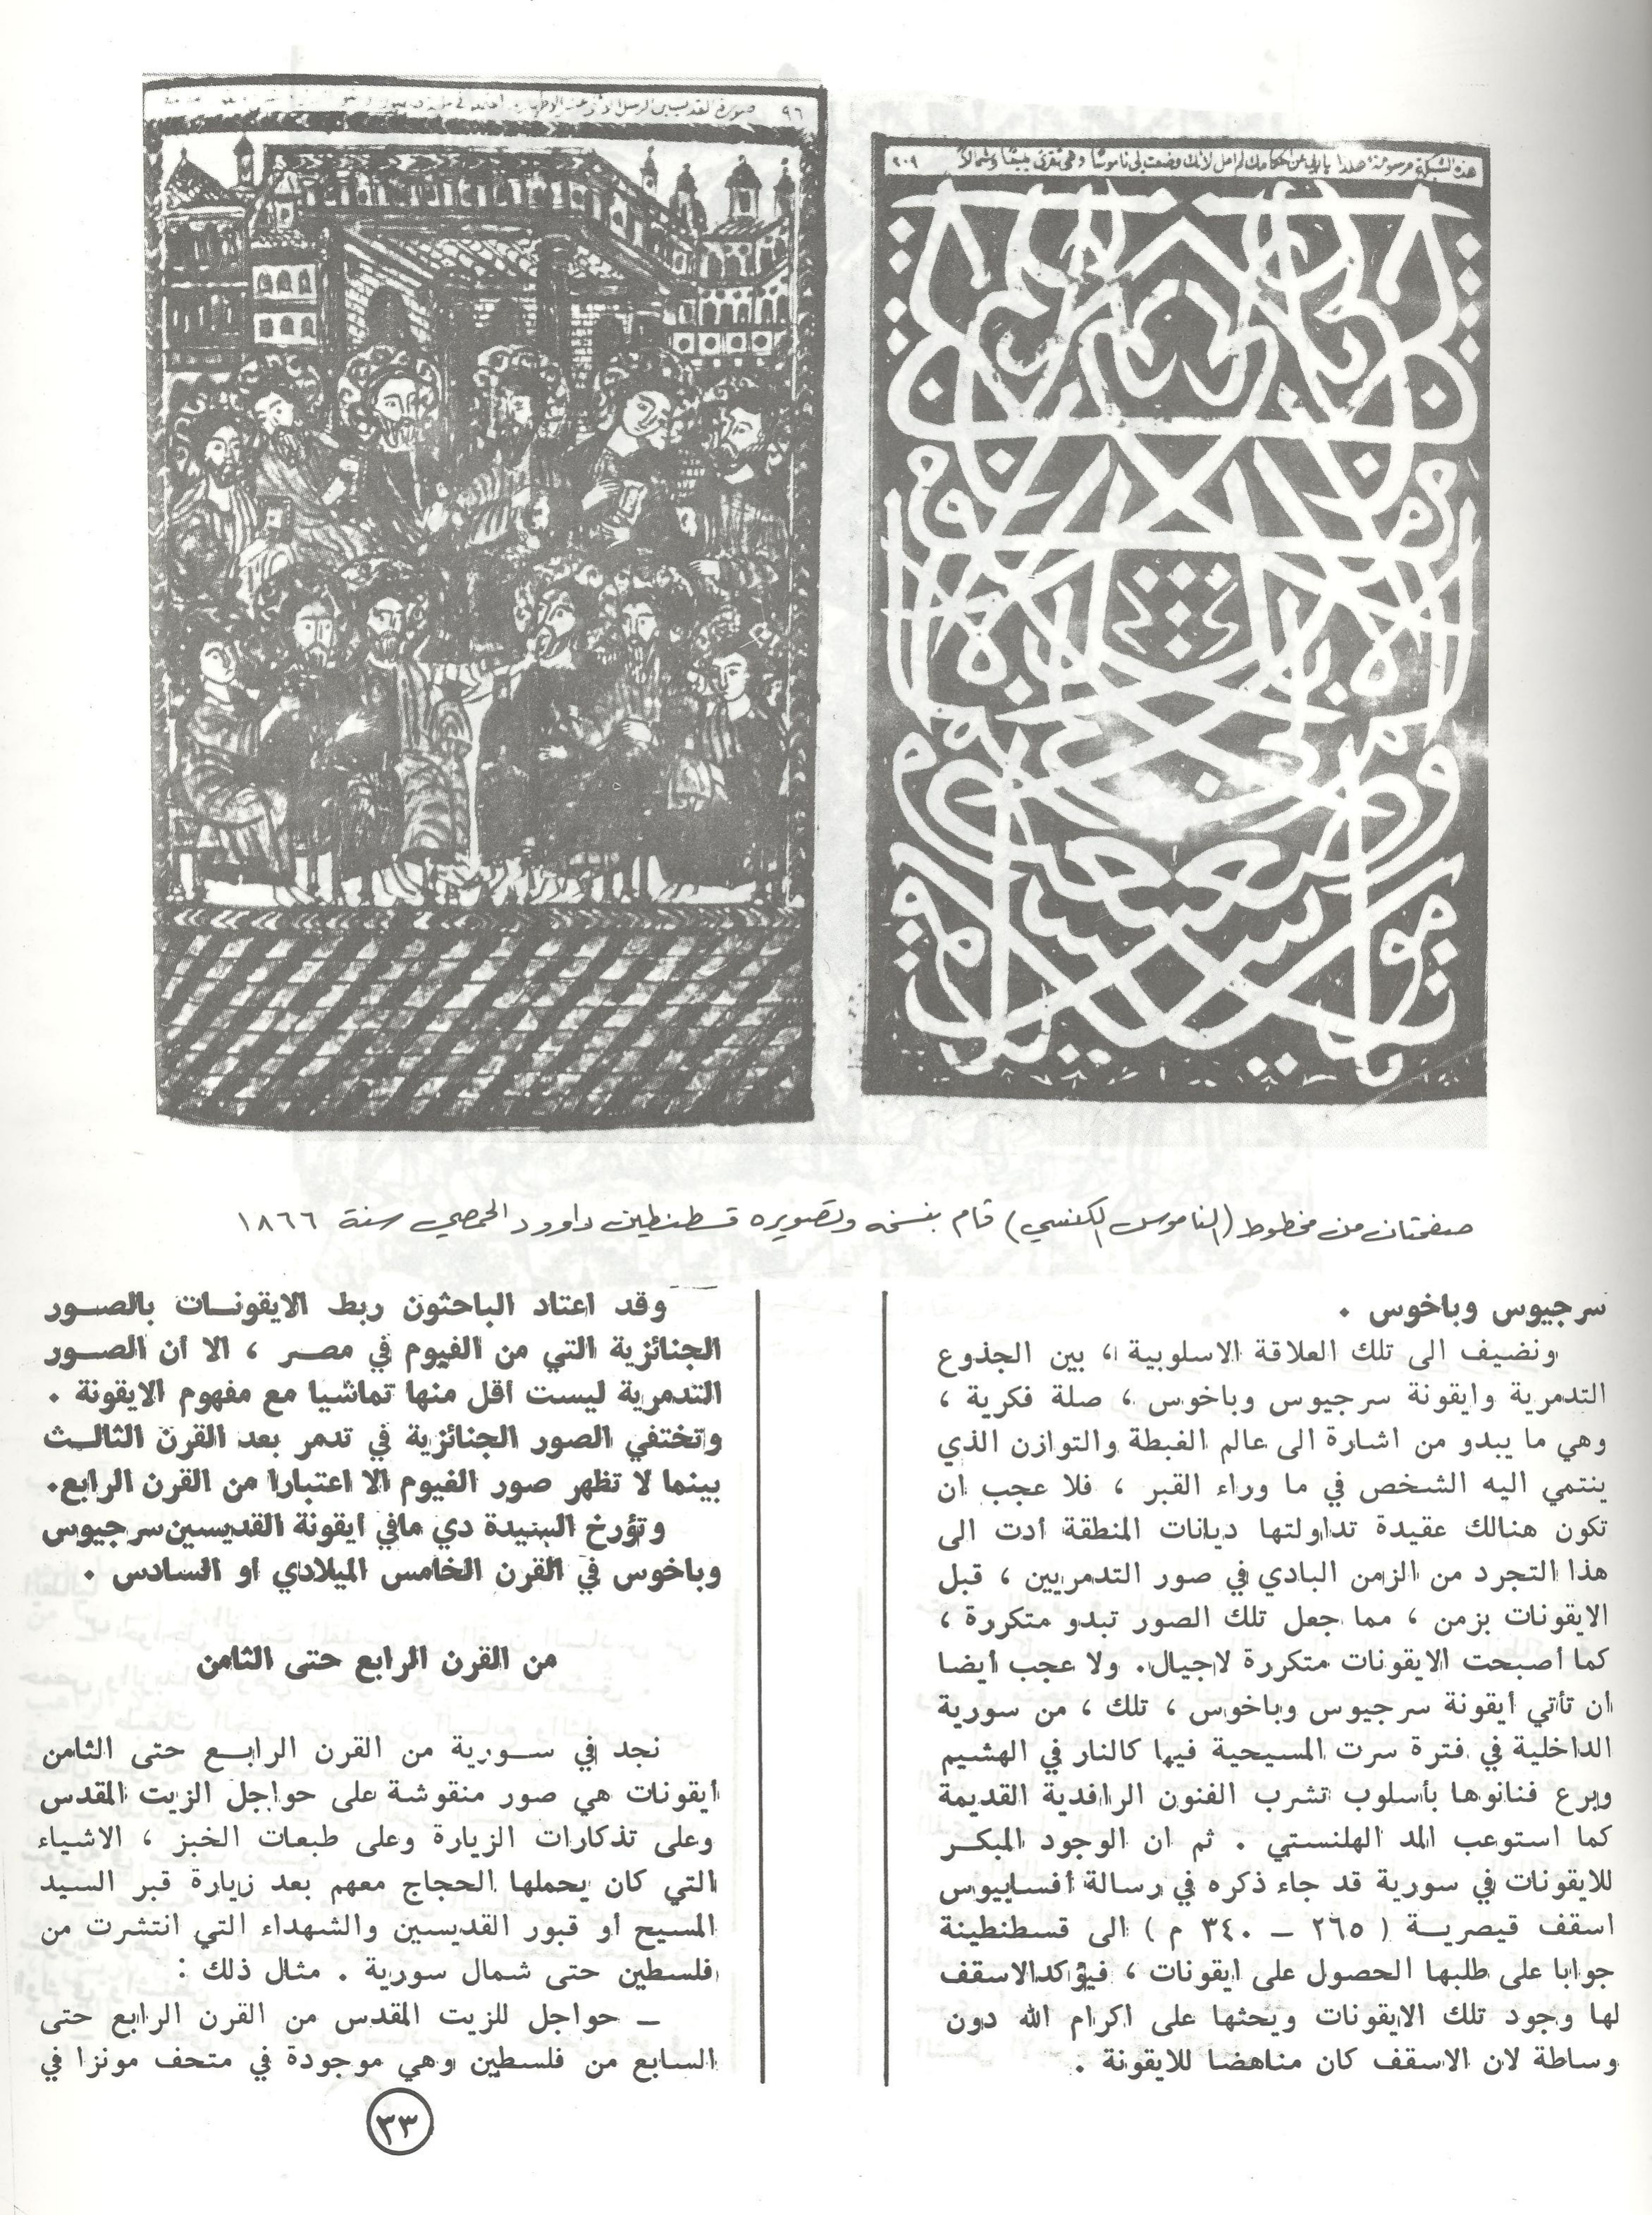 ٩٦ صورة القديسين الرسل
هذه الشبكة مرسومة هكذا يا رب عن احكامك لم امل لانك وضعت لي ناموسًا وهي تقرئ يمينًا وشمالاً ٢٠٩
صفحتان من مخطوط (الناموس الكنسي) قام بنسخه وتصويره قسطنطين داوود الحمصي سنة ١٨٦٦
سرجيوس وباخوس .
ونضيف الى تلك العلاقة الاسلوبية ، بين الجذوع
التدمرية وايقونة سرجيوس وباخوس ، صلة فكرية ،
وهي ما يبدو من اشارة الى عالم الغبطة والتوازن الذي
ينتمي اليه الشخص في ما وراء القبر ، فلا عجب ان
تكون هنالك عقيدة تداولتها ديانات المنطقة أدت الى
هذا التجرد من الزمن البادي في صور التدمريين ، قبل
الايقونات بزمن ، مما جعل تلك الصور تبدو متكررة ،
كما أصبحت الايقونات متكررة لاجيال. ولا عجب أيضا
أن تأتي أيقونة سرجيوس وباخوس ، تلك ، من سورية
الداخلية في فترة سرت المسيحية فيها كالنار في الهشيم
وبرع فنانوها بأسلوب تشرب الفنون الرافدية القديمة
كما استوعب المد الهلنستي . ثم ان الوجود المبكر
للايقونات في سورية قد جاء ذكره في رسالة أفسابيوس
اسقف قيصرية ( ٢٦٥ – ٣٤٠ م ) الى قسطنطينة
جوابا على طلبها الحصول على ايقونات ، فيؤكد الاسقف
لها وجود تلك الايقونات ويحثها على اكرام الله دون
وساطة لان الاسقف كان مناهضا للايقونة .
وقد اعتاد الباحثون ربط الايقونات بالصور
الجنائزية التي من الفيوم في مصر ، الا أن الصور
التدمرية ليست أقل منها تماشيا مع مفهوم الايقونة .
وتختفي الصور الجنائزية في تدمر بعد القرن الثالث
بينما لا تظهر صور الفيوم الا اعتبارا من القرن الرابع.
وتؤرخ السيدة دي مافي أيقونة القديسين سرجيوس
وباخوس في القرن الخامس الميلادي أو السادس .
من القرن الرابع حتى الثامن
نجد في سورية من القرن الرابع حتى الثامن
أيقونات هي صور منقوشة على حواجل الزيت المقدس
وعلى تذكارات الزيارة وعلى طبعات الخبز ، الاشياء
التي كان يحملها الحجاج معهم بعد زيارة قبر السيد
المسيح أو قبور القديسين والشهداء التي انتشرت من
فلسطين حتى شمال سورية . مثال ذلك :
– حواجل للزيت المقدس من القرن الرابع حتى
السابع من فلسطين وهي موجودة في متحف مونزا في
٣٣